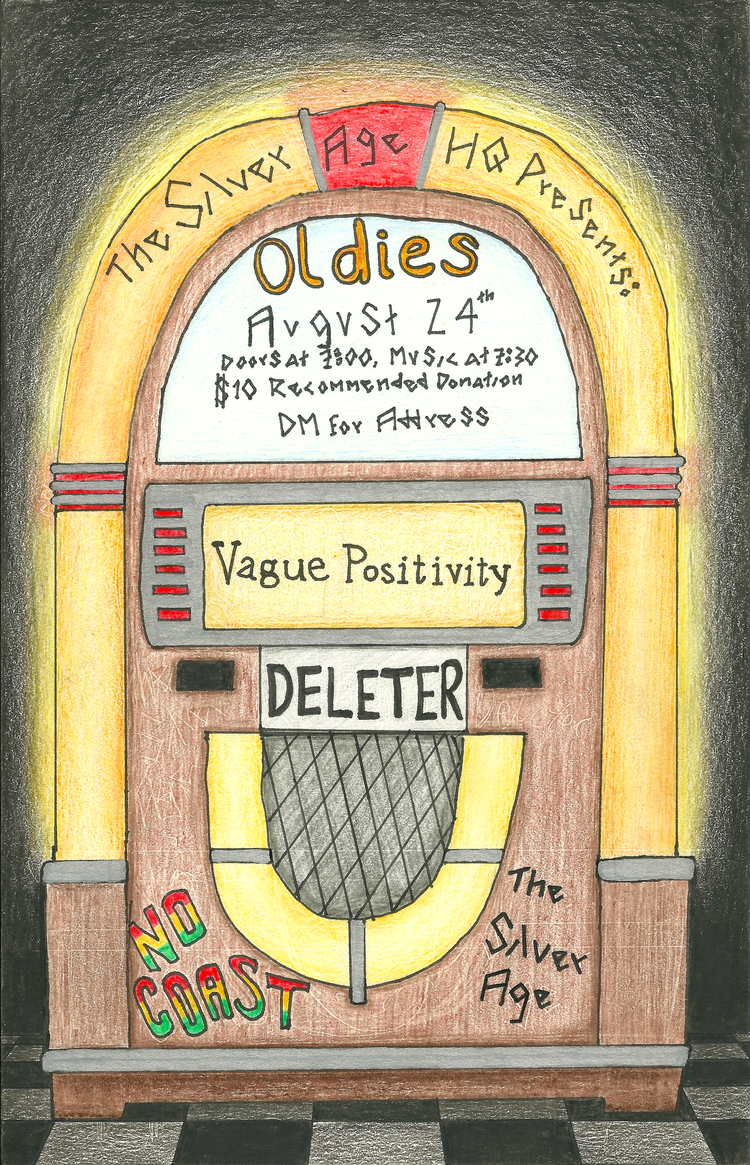 The Silver Age HQ Presents:
Oldies
August 24th
Doors at 7:00, Music at 7:30
$10 Recommended Donation
DM for Address
Vague Positivity
DELETER
NO
COAST
The
Silver
Age